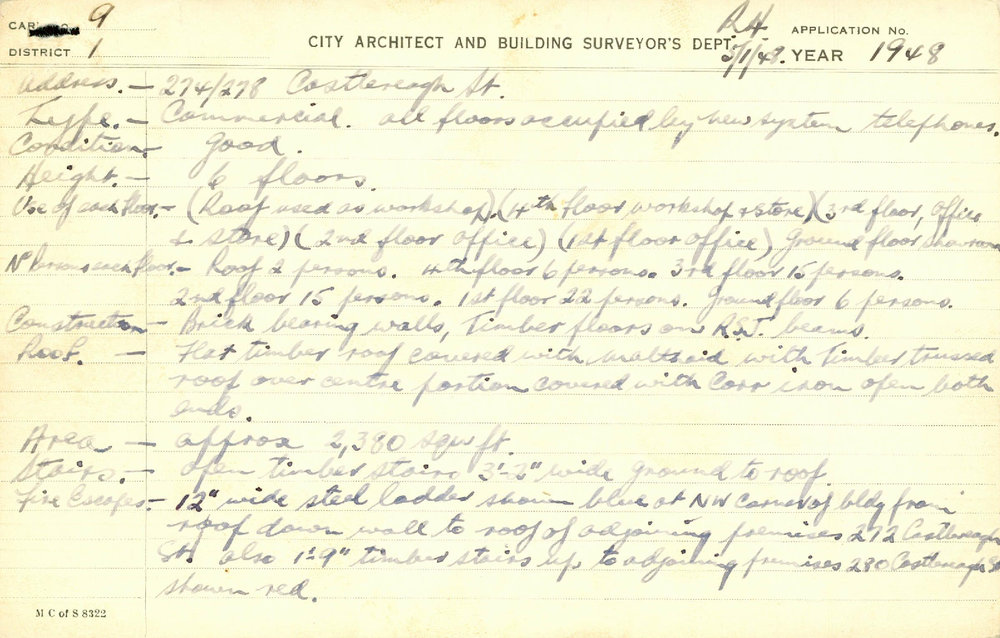 CARD No. 9
DISTRICT 1
CITY ARCHITECT AND BUILDING SURVEYOR'S DEPT.
R.H.
5/1/48.
APPLICATION No.
YEAR 1948
Address. - 274/278 Castlereagh St.
Type. - Commercial. all floors occupied by new system telephones.
Condition - Good.
Height. - 6 floors.
Use of each floor. - (Roof used as workshop). (4th floor workshop & store) (3rd floor, office
& store) (2nd floor office) (1st floor office) Ground floor showroom
No Persons each floor. - Roof 2 persons. 4th floor 6 persons. 3rd floor 15 persons.
2nd floor 15 persons. 1st floor 22 persons. Ground floor 6 persons.
Construction - Brick bearing walls, Timber floors on R.S.J. beams.
Roof. - Flat timber roof covered with malthoid with Timber trussed
roof over centre portion covered with Corr iron open both
ends.
Area - approx 2,380 squ ft.
Stairs. - open timber stairs 3'-2" wide ground to roof.
Fire Escapes. - 12" wide steel ladder shown blue at NW Corner of bldg from
roof down wall to roof of adjoining premises 272 Castlereagh
St. also 1'-9" timber stairs up to adjoining premises 280 Castlereagh St
shown red.
M C of S 8322